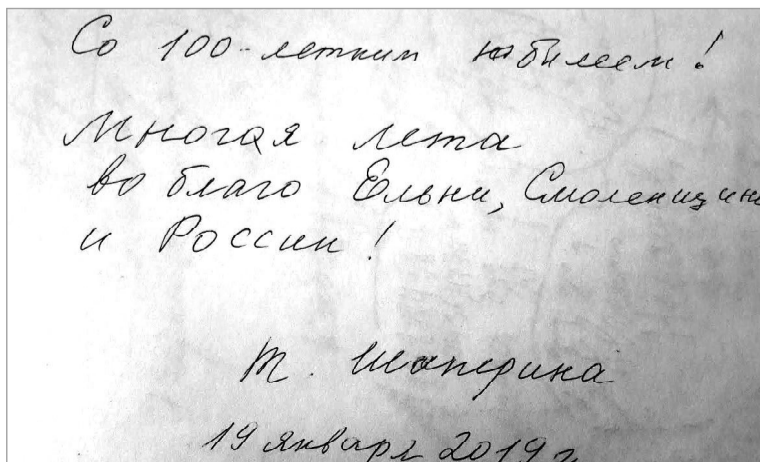 Со 100-летним юбилеем!
Многая лета
во благо Ельни, Смоленщины
и России!
Т.
19 января 2019 г